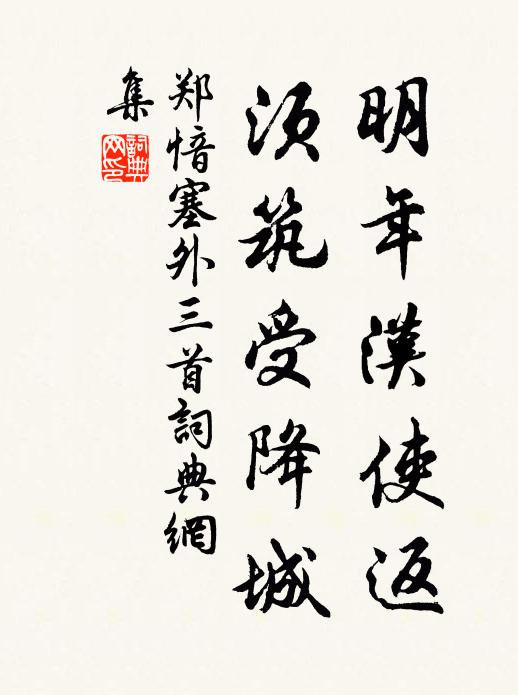 明年漢使返
须筑受降城
郑愔塞外三首詞典網
集
詞典網印